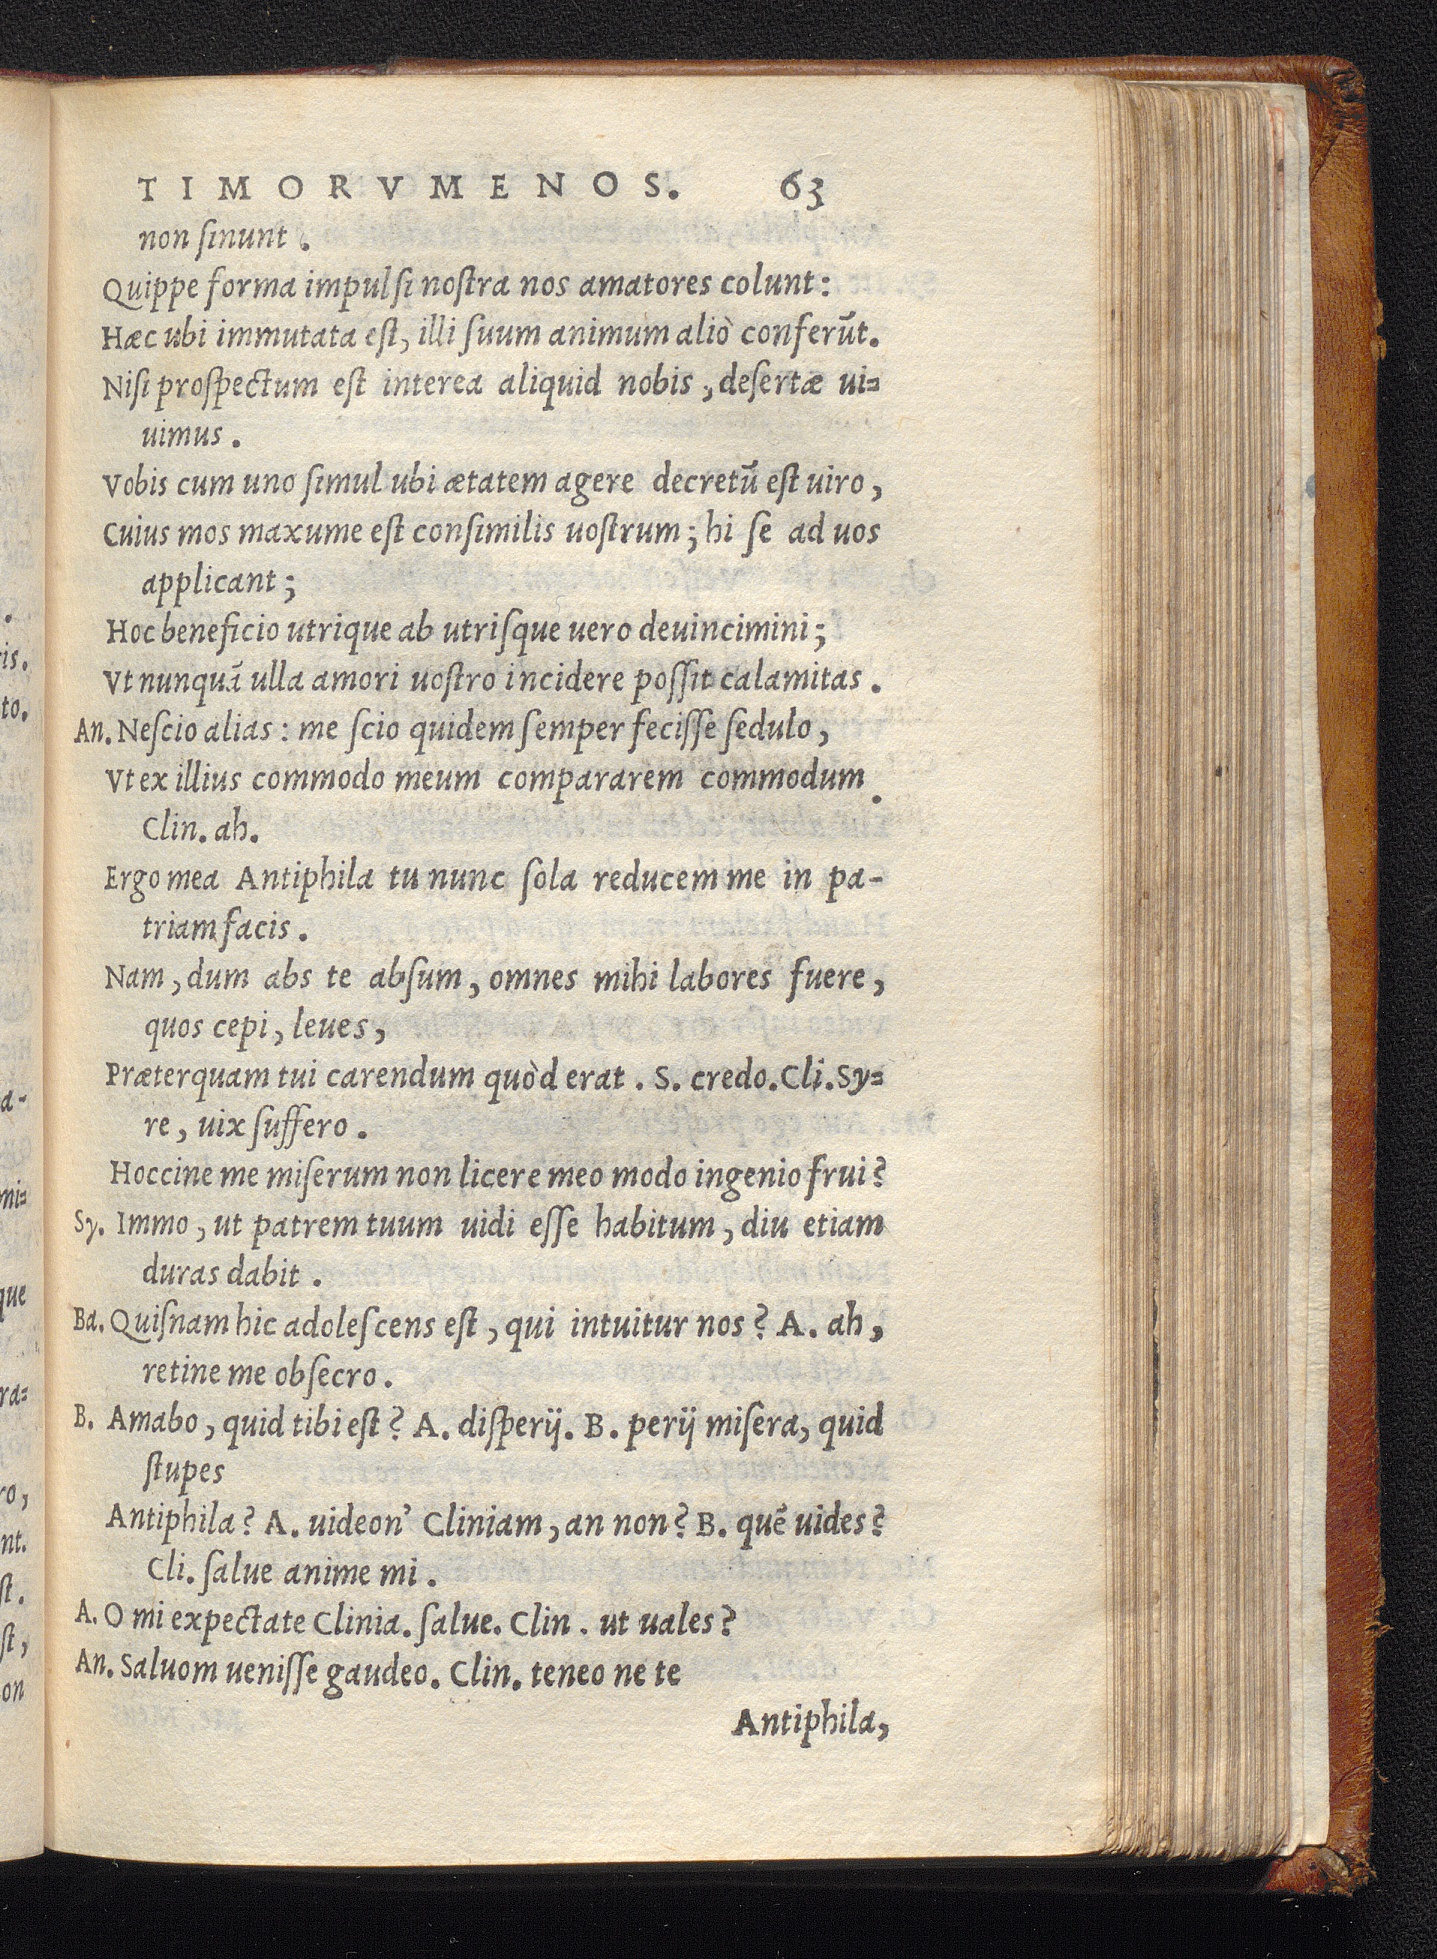 TIMORVMENOS. 63
non ſinunt.
Quippe forma impulſi noſtra nos amatores colunt:
Hæc ubi immutata eſt, illi ſuum animum aliò conferūt.
Niſi proſpectum eſt interea aliquid nobis, deſertæ ui=
uimus.
Vobis cum uno ſimul ubi ætatem agere decretū eſt uiro,
Cuius mos maxume eſt conſimilis uoſtrum; hi ſe ad uos
applicant;
Hoc beneficio utrique ab utriſque uero deuincimini;
Vt nunquā ulla amori uoſtro incidere poſſit calamitas.
An. Neſcio alias: me ſcio quidem ſemper feciſſe ſedulo,
Vt ex illius commodo meum compararem commodum.
Clin. ah.
Ergo mea Antiphila tu nunc ſola reducem me in pa-
triam facis.
Nam, dum abs te abſum, omnes mihi labores fuere,
quos cepi, leues,
Præterquam tui carendum quòd erat. S. credo. Cli. Sy=
re, uix ſuffero.
Hoccine me miſerum non licere meo modo ingenio frui?
Sy. Immo, ut patrem tuum uidi eſſe habitum, diu etiam
duras dabit.
Ba. Quiſnam hic adoleſcens eſt, qui intuitur nos? A. ah,
retine me obſecro.
B. Amabo, quid tibi eſt? A. diſperij. B. perij miſera, quid
ſtupes
Antiphila? A. uideon' Cliniam, an non? B. quē uides?
Cli. ſalue anime mi.
A. O mi expectate Clinia. ſalue. Clin. ut uales?
An. Saluom ueniſſe gaudeo. Clin. teneo ne te
Antiphila,